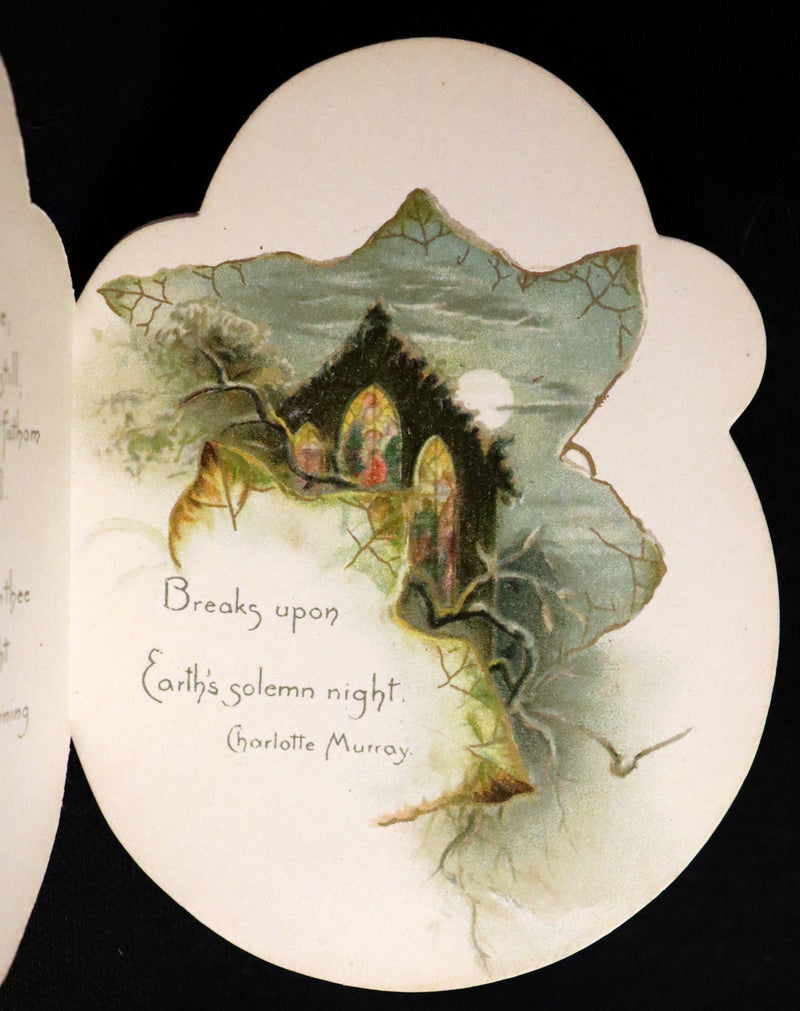 fathom
thee
Breaks upon
Earth's solemn night.
Charlotte Murray.